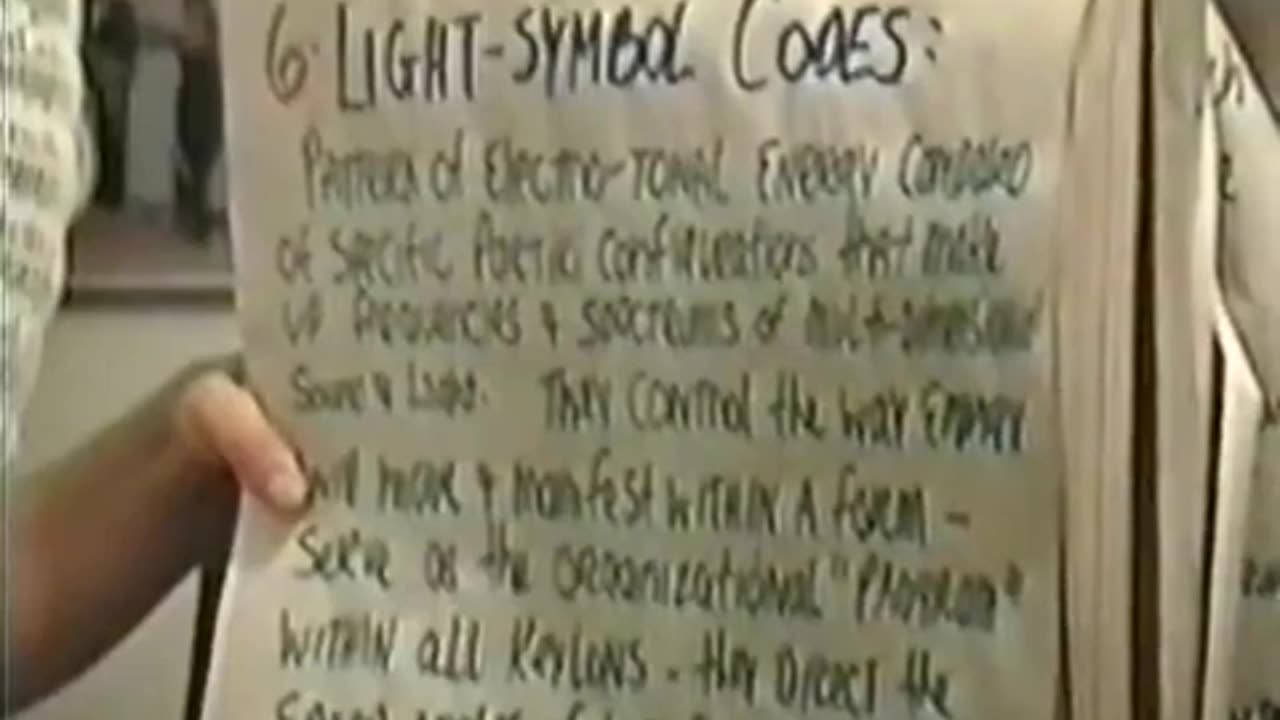 6. LIGHT-SYMBOL CODES:
Pattern of Electro-Tonal Energy Composed
of Specific Partiki Configurations that make
up frequencies & spectrums of multi-dimensional
Sound & Light. They control the way Energy
will move & manifest within A form -
Serve as the organizational "Program"
within all Keylons. They Direct the